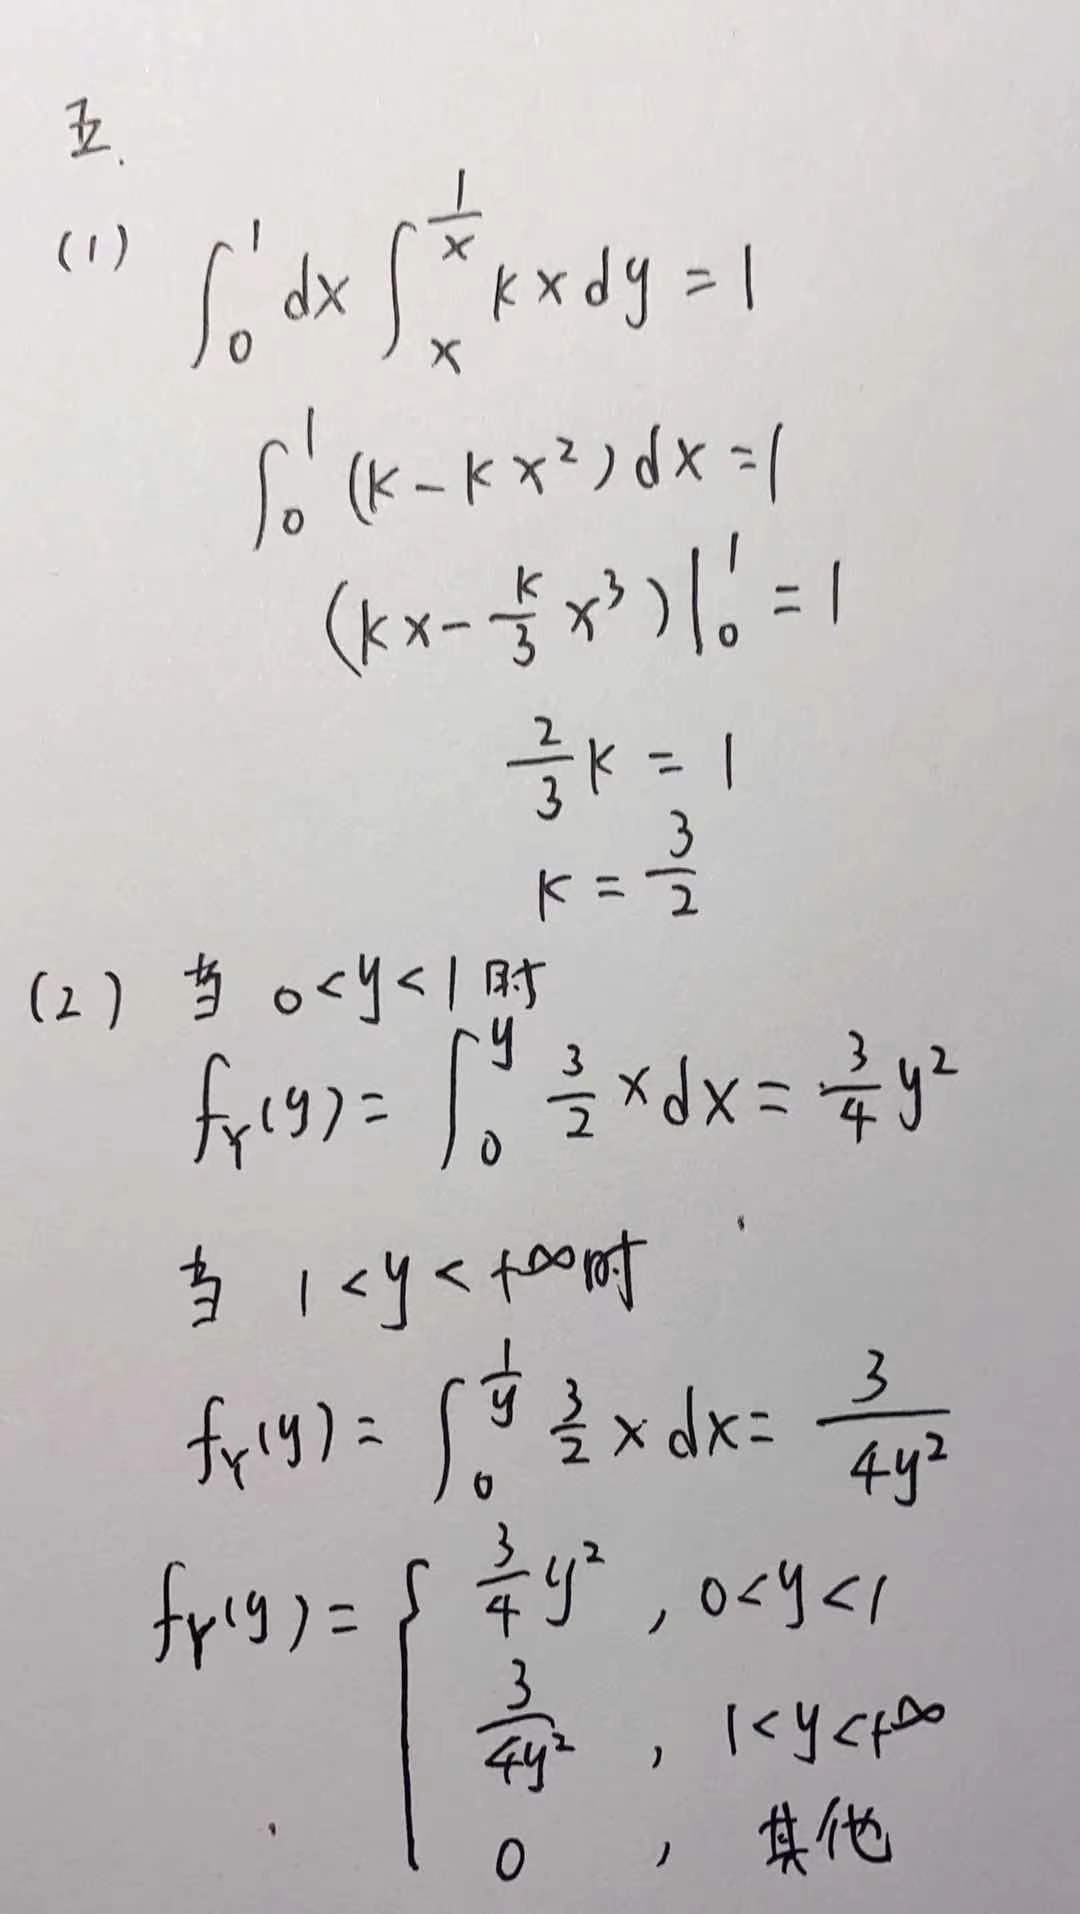 五.
(1) ∫₀¹ dx ∫ₓ^(1/x) kx dy = 1
∫₀¹ (k - kx²) dx = 1
(kx - k/3 x³)|₀¹ = 1
2/3 k = 1
k = 3/2
(2) 当 0<y<1时
f_Y(y) = ∫₀^y 3/2 x dx = 3/4 y²
当 1<y<+∞时
f_Y(y) = ∫₀^(1/y) 3/2 x dx = 3/(4y²)
f_Y(y) = { 3/4 y² , 0<y<1
3/(4y²) , 1<y<+∞
0 , 其他